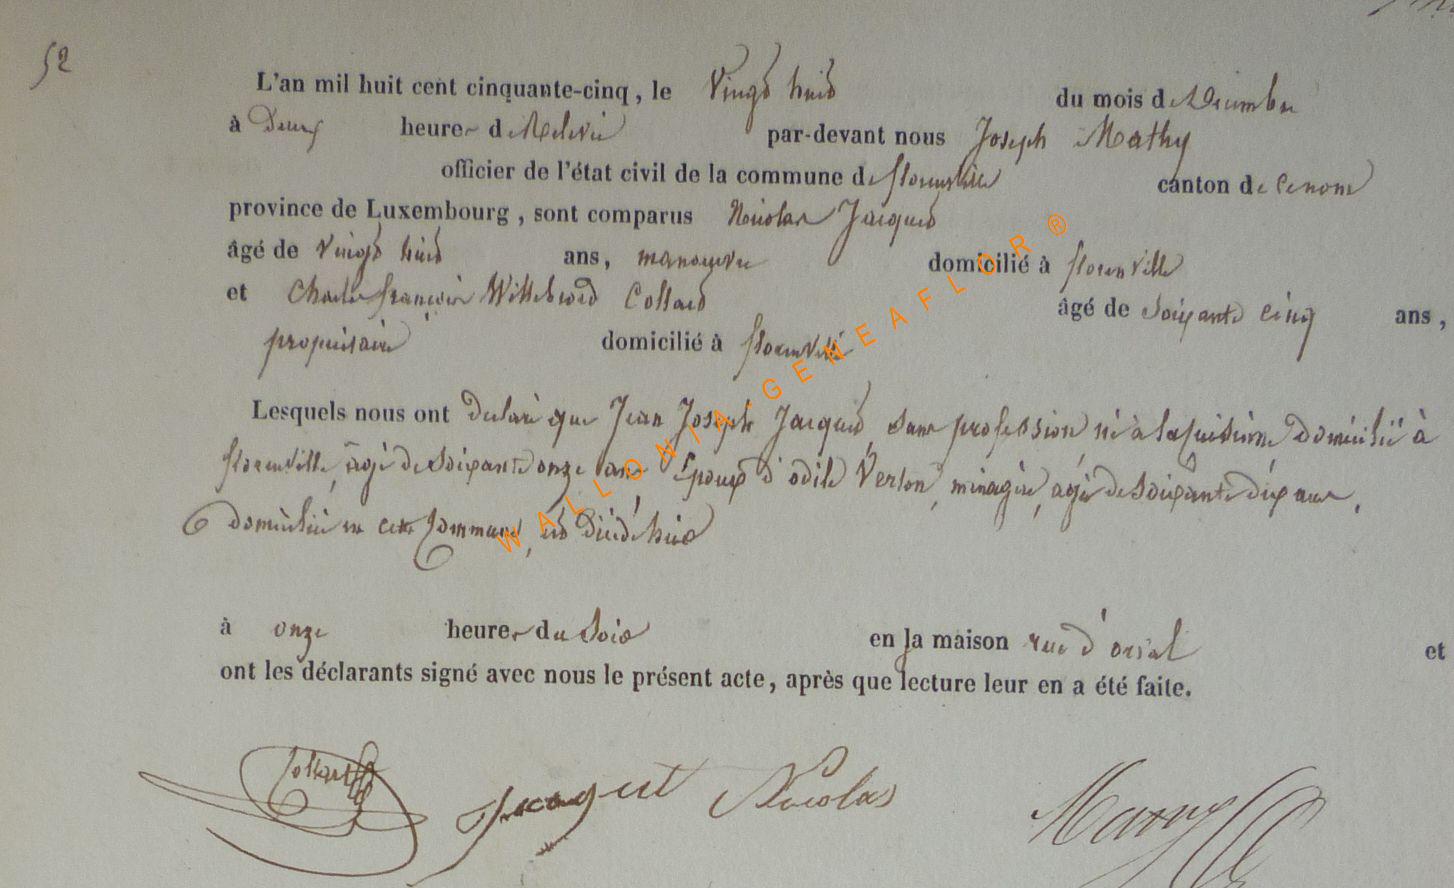 52
L'an mil huit cent cinquante-cinq, le Vingt huit du mois de Décembre
à Deux heures de Relevée par-devant nous Joseph Mathy
officier de l'état civil de la commune de florenville canton de
province de Luxembourg, sont comparus Nicolas Jacquet
âgé de vingt huit ans, manoeuvre domicilié à florenville
et Charles françois Willebrord Collard âgé de Soixante cinq ans,
propriétaire domicilié à florenville
Lesquels nous ont déclaré que Jean Joseph Jacquet, sans profession né à lacuisine, domicilié à
florenville, âgé de Soixante onze ans Epoux d'odile Verlon, ménagère, agée de Soixante dix ans,
domicilié en cette Commune, est décédé hier
à onze heures du Soir en la maison rue d'orval et
ont les déclarants signé avec nous le présent acte, après que lecture leur en a été faite.
Collard Jacquet Nicolas Mathy
WALLONIA-GENEAFLOR ®